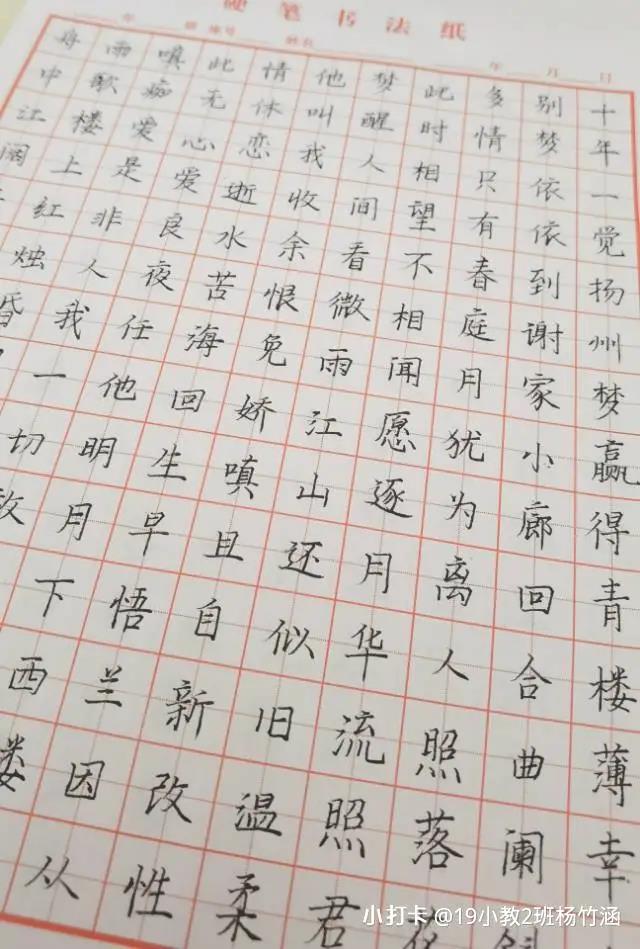 硬笔书法纸
年 班 座号 姓名 年 月 日
十年一觉扬州梦赢得青楼薄幸
别梦依依到谢家小廊回合曲阑
多情只有春庭月犹为离人照落
此时相望不相闻愿逐月华流照君
梦醒人间看微雨江山还似旧温柔
他叫我收余恨免娇嗔且自新改性
情休恋逝水苦海回生早悟兰因从
此无心爱良夜任他明月下西楼
嗔痴爱是非人我一切放
雨歌楼上红烛昏
舟中江阔
小打卡 @19小教2班杨竹涵